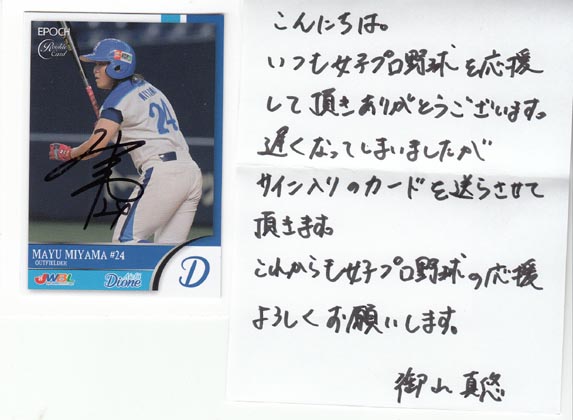 EPOCH
Rookie
Card
24
MAYU MIYAMA #24
OUTFIELDER
JWBL
Dione
D
こんにちは。
いつも女子プロ野球を応援
して頂きありがとうございます。
遅くなってしまいましたが
サイン入りのカードを送らさせて
頂きます。
これからも女子プロ野球の応援
よろしくお願いします。
御山真悠